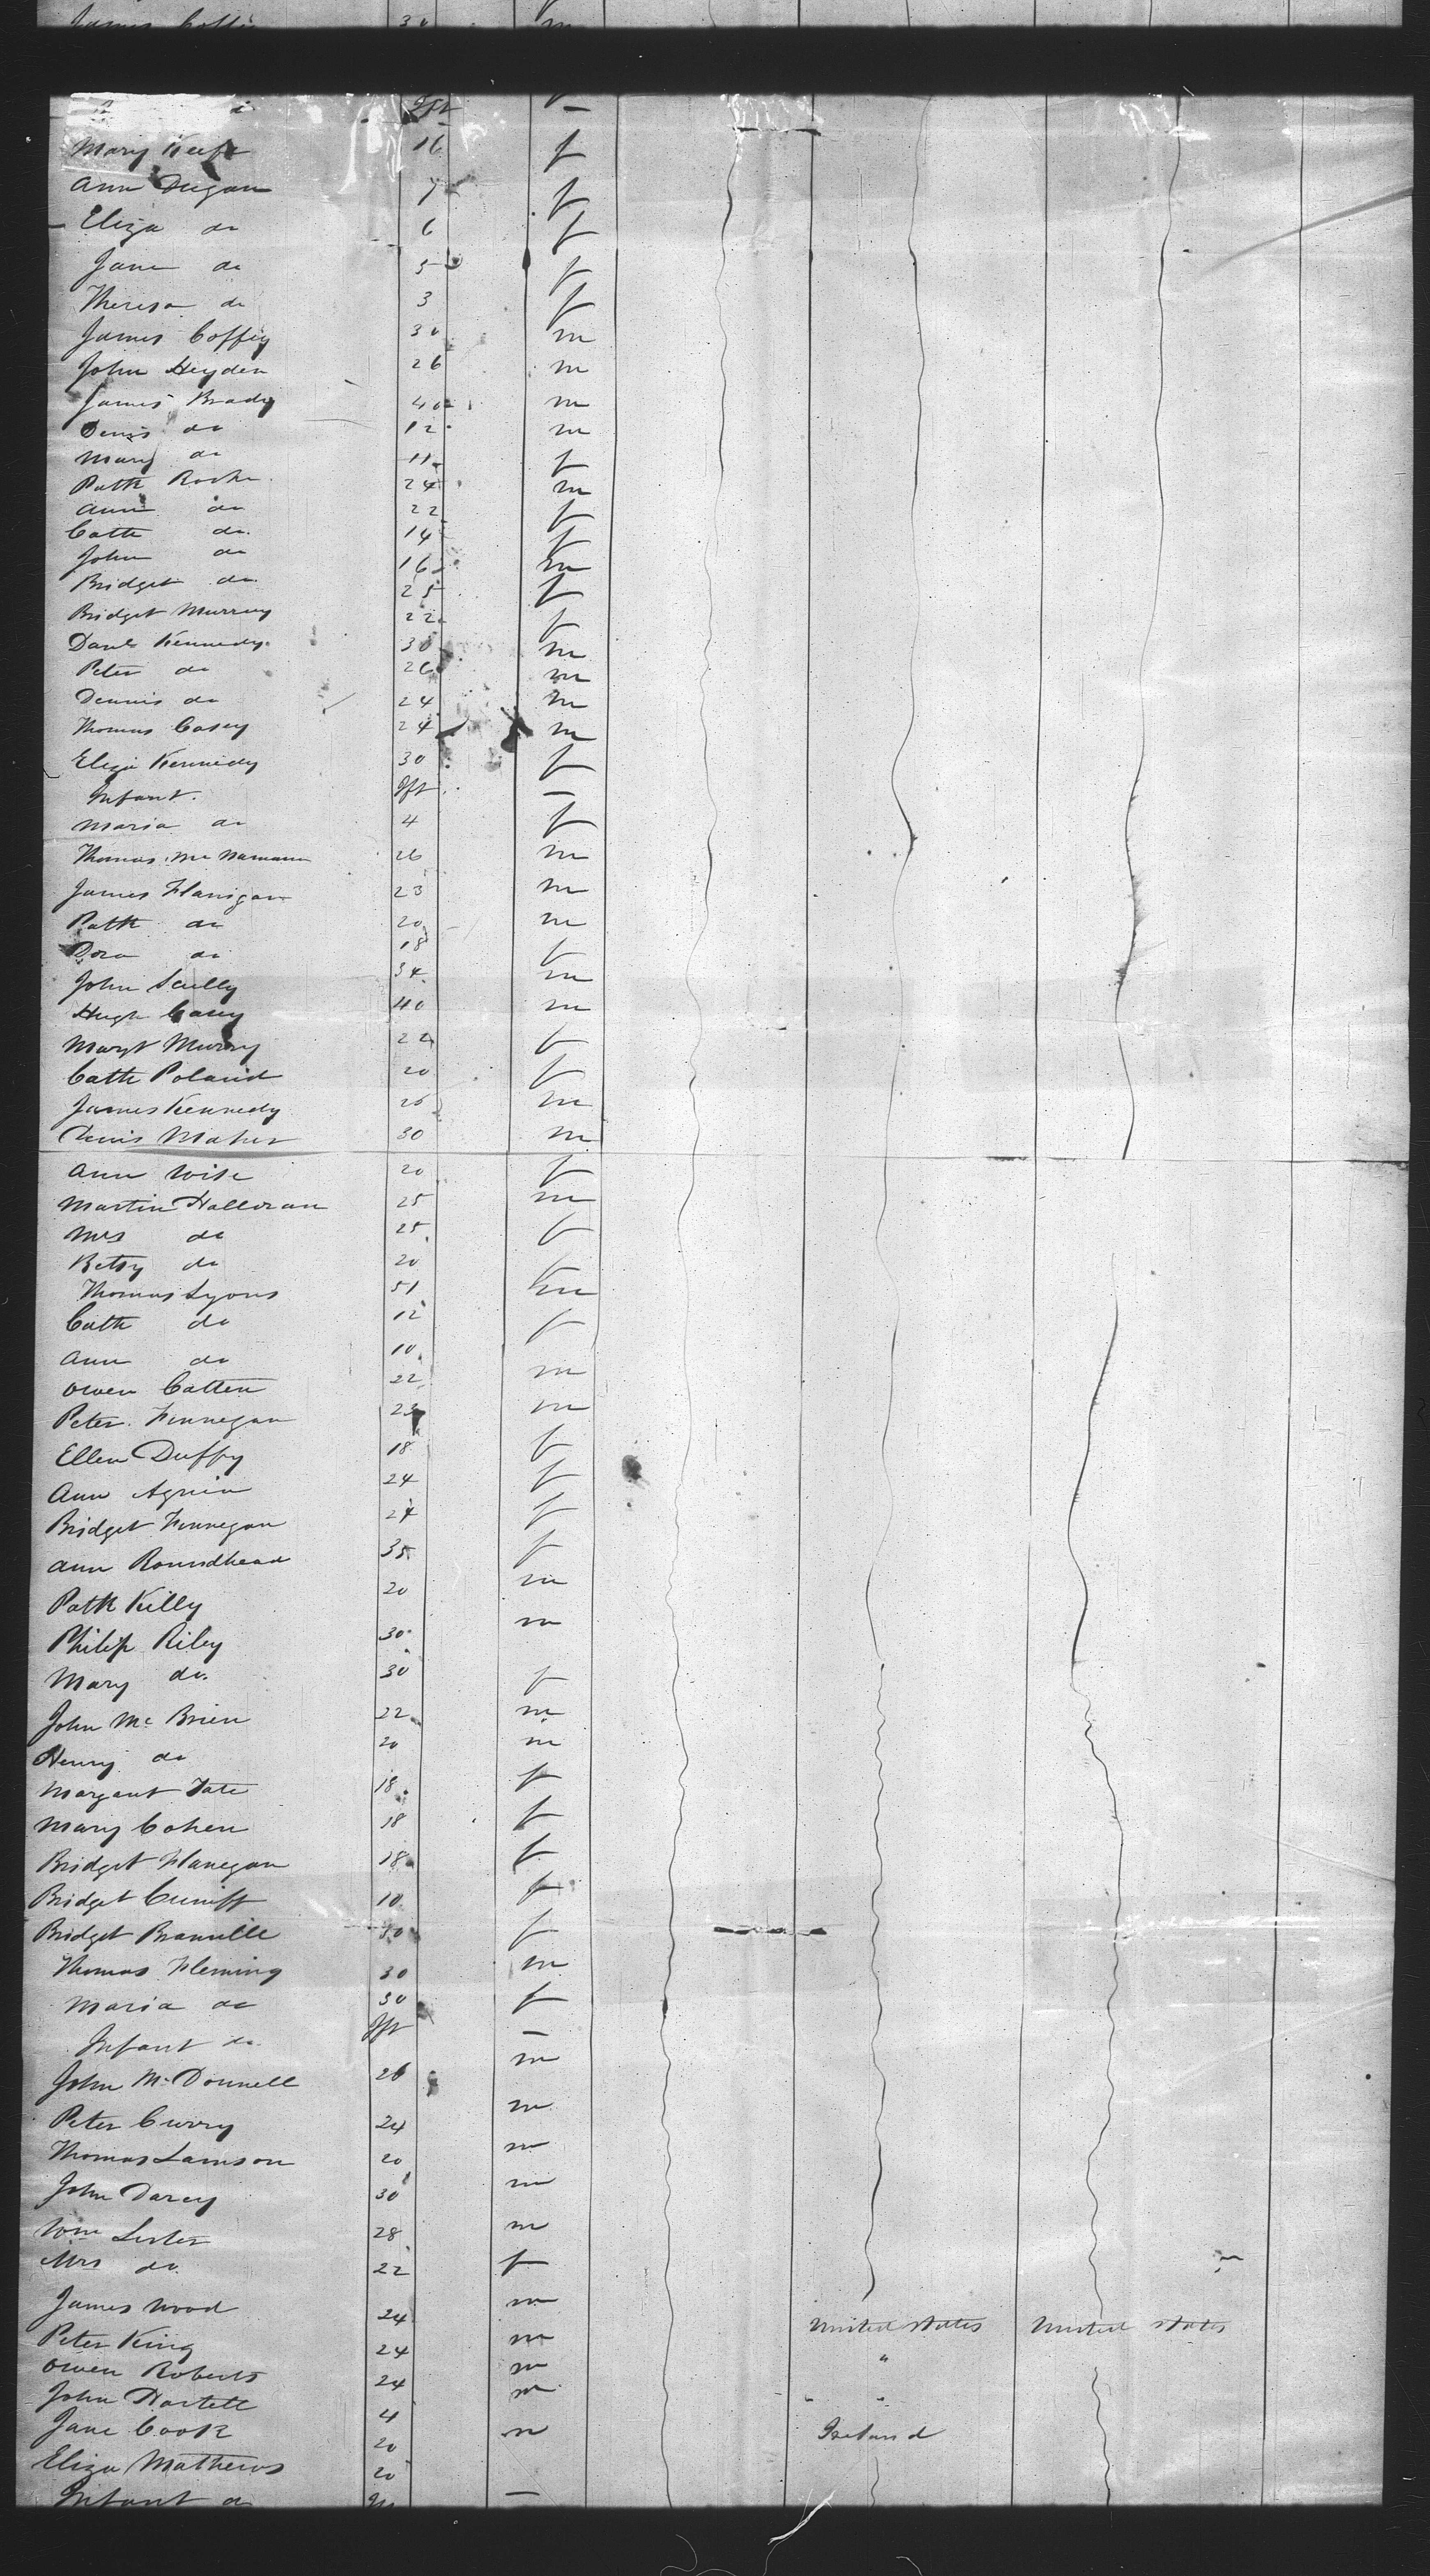 James Coffi 30 m
Ift —
Mary Keefe 16 f
Ann Dugan 7 f
Eliza do 6 f
Jane do 5 f
Theresa do 3 f
James Coffey 30 m
John Heyden 26 m
James Brady 40 m
Denis do 12 m
Mary do 11 f
Patk Roche 24 m
Ann do 22 f
Cath do 14 f
John do 16 m
Bridget do 25 f
Bridget Murray 22 f
Danl Kennedy 30 m
Peter do 26 m
Dennis do 24 m
Thomas Casey 24 m
Eliza Kennedy 30 f
Infant Ift —
Maria do 4 f
Thomas McNamara 26 m
James Flanigan 23 m
Patk do 20 m
Dora do 18 f
John Scully 34 m
Hugh Casey 40 m
Margt Murry 22 f
Cath Poland 20 f
James Kennedy 26 m
Denis Maher 30 m
Ann Wise 20 f
Martin Halloran 25 m
Mrs do 25 f
Betsy do 20
Thomas Lyons 51 m
Cath do 12 f
Ann do 10
Owen Catten 22 m
Peter Finnegan 23 m
Ellen Duffy 18 f
Ann Agnin 24 f
Bridget Finnegan 24 f
Ann Roundhead 35 f
Patk Killy 20 m
Philip Riley 30 m
Mary do 30 f
John McBrien 22 m
Henry do 20 m
Margaret Tate 18 f
Mary Cohen 18 f
Bridget Flanegan 18 f
Bridget Cuniff 10 f
Bridget Branville 30 f
Thomas Fleming 30 m
Maria do 30 f
Infant do Ift —
John McDonnell 26 m
Peter Curry 24 m
Thomas Lamson 20 m
John Darcy 30 m
Wm Lester 28 m
Mrs do 22 f
James Wood 24 m United States United States
Peter King 24 m "
Owen Roberts 24 m
John Hartett 4 m " "
Jane Cook 20 m Ireland
Eliza Mathews 20
Infant d —